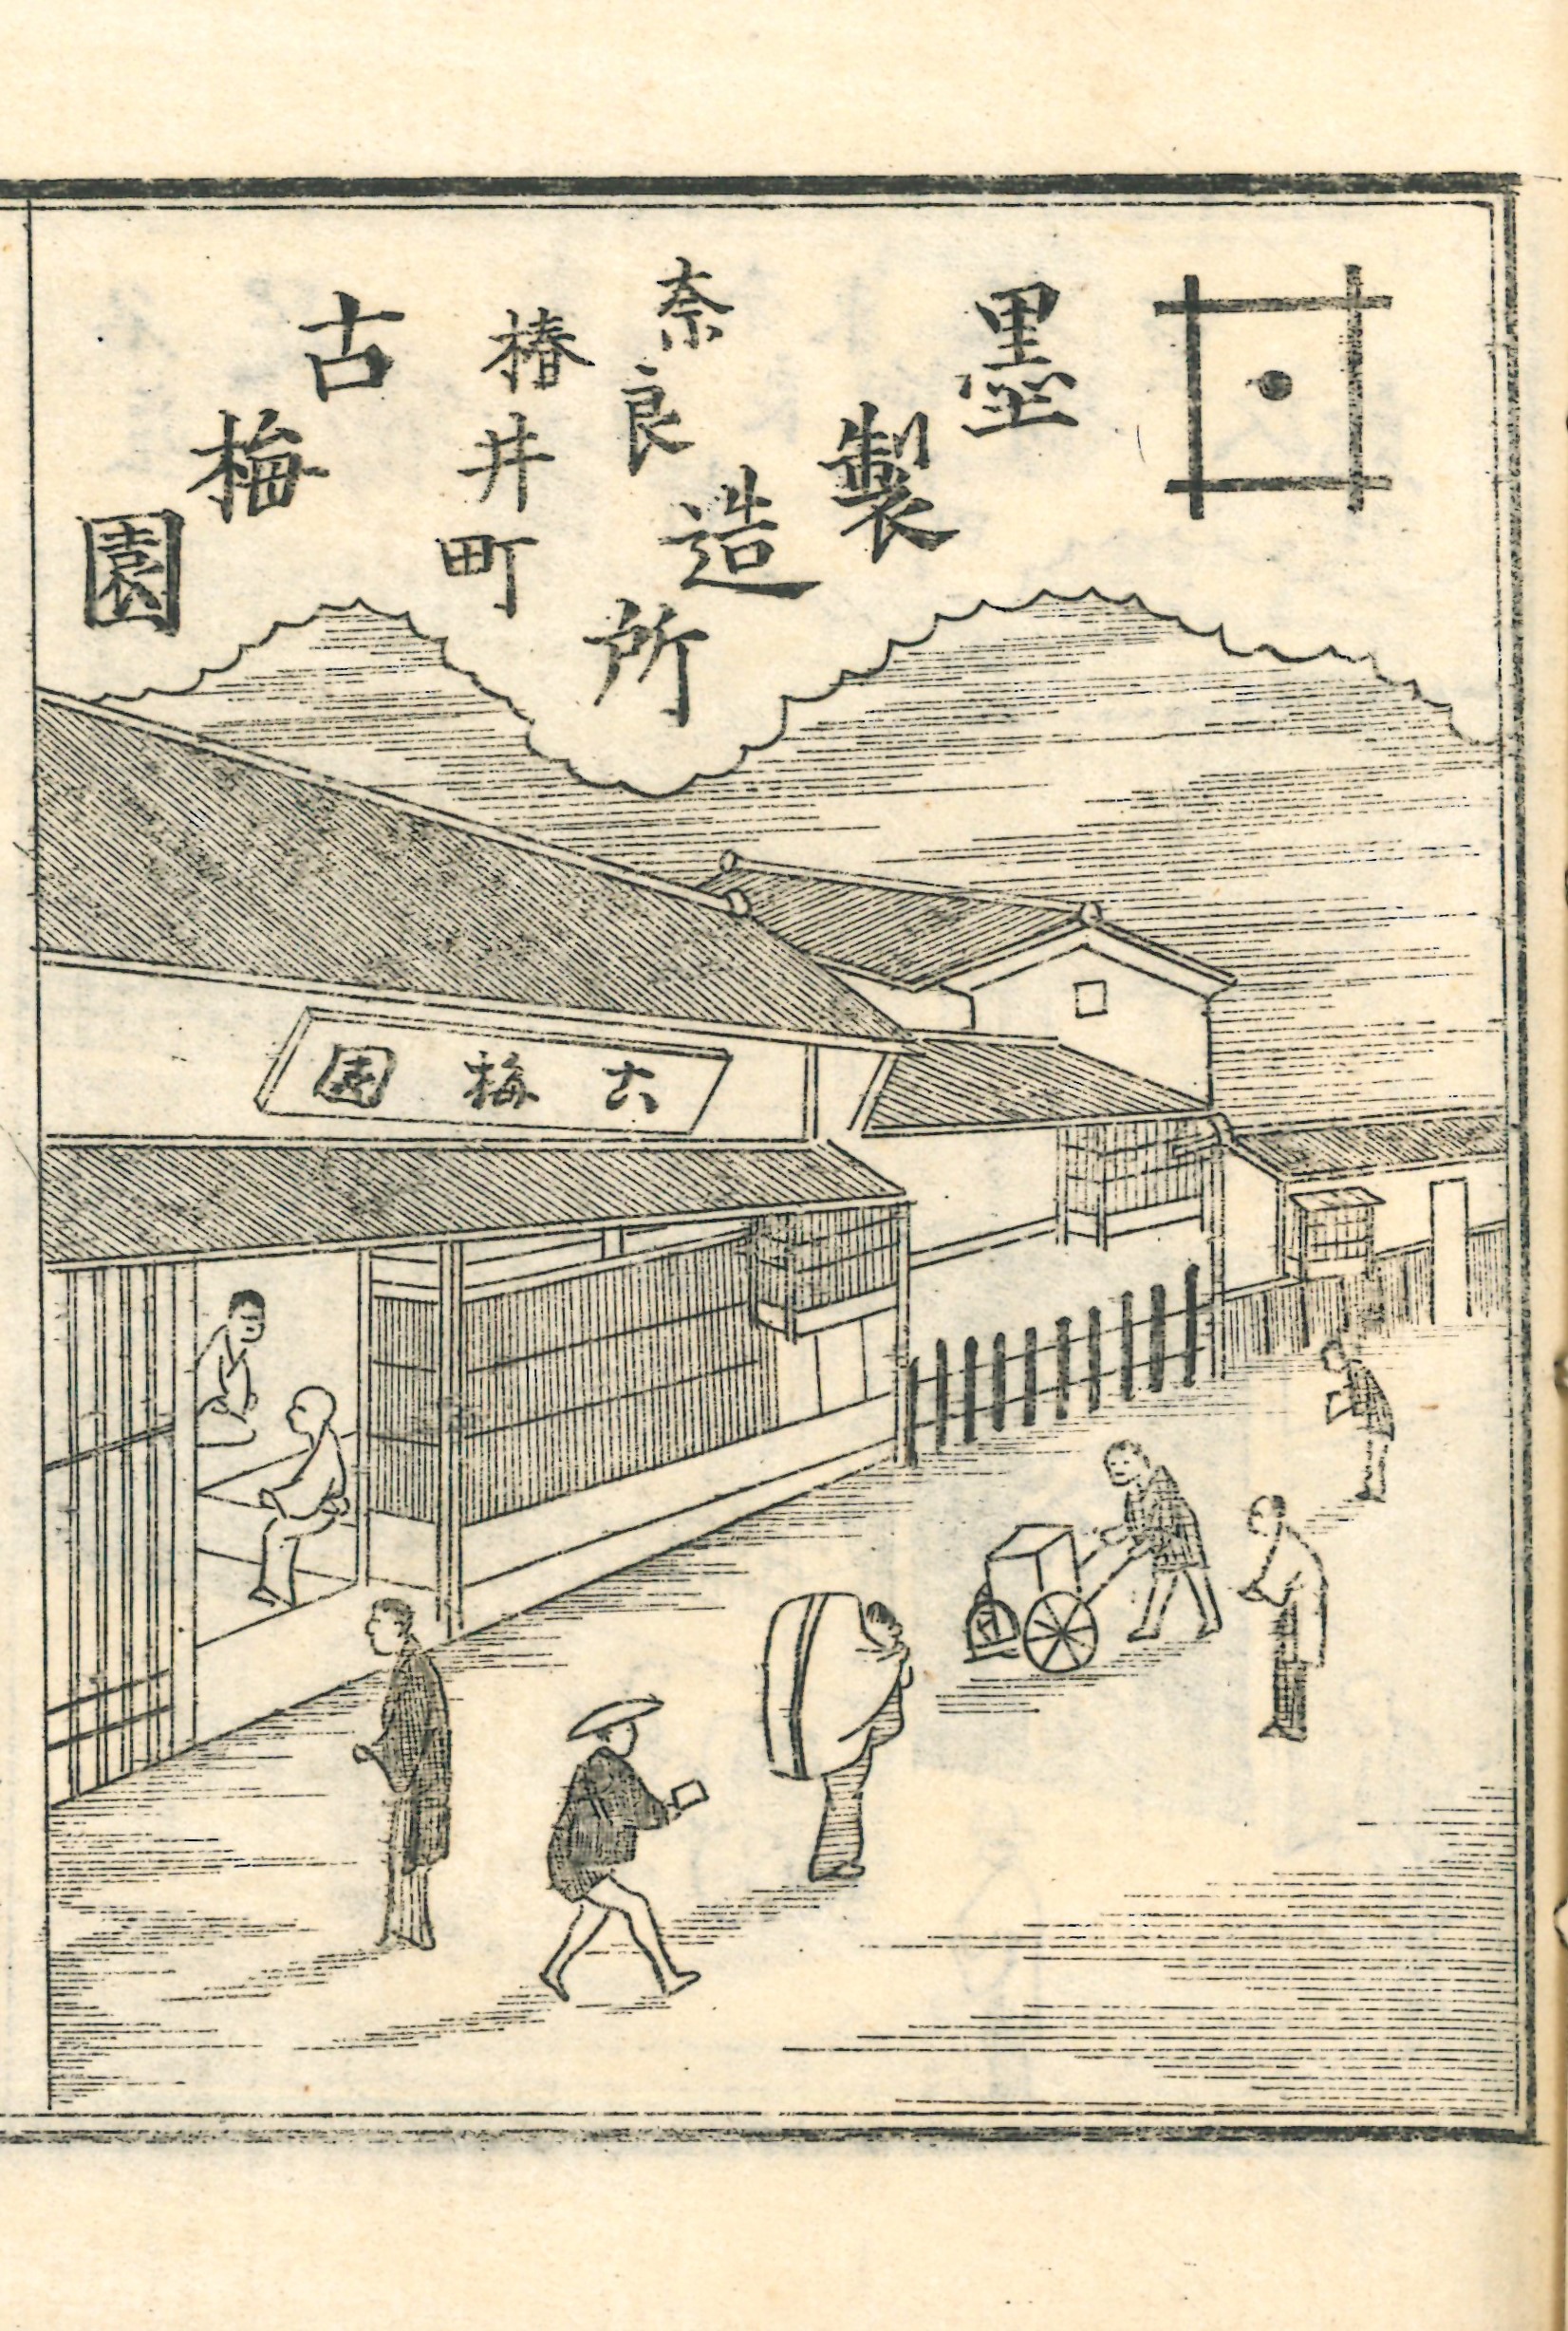 墨製造所
奈良
椿井町
古梅園
古梅園